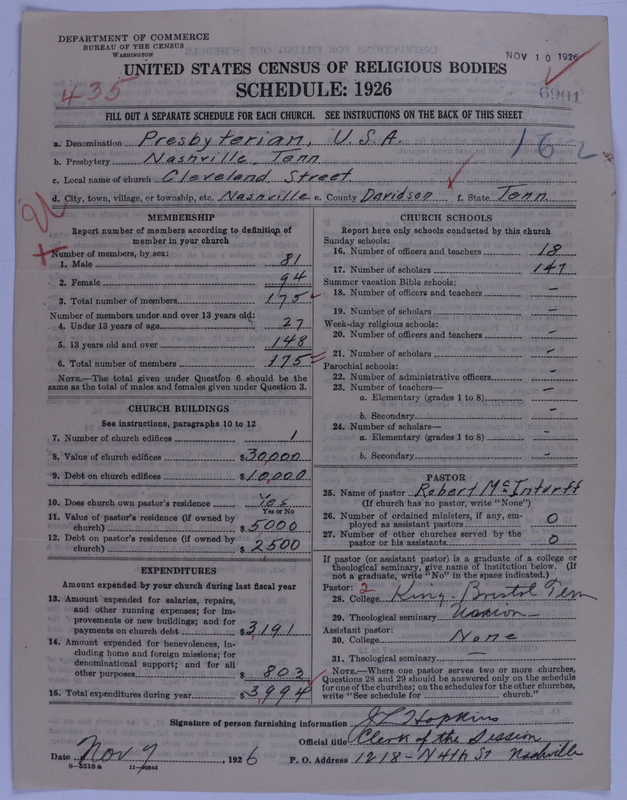 DEPARTMENT OF COMMERCE
BUREAU OF THE CENSUS
WASHINGTON
NOV 10 1926
UNITED STATES CENSUS OF RELIGIOUS BODIES
SCHEDULE: 1926
435
6991
FILL OUT A SEPARATE SCHEDULE FOR EACH CHURCH. SEE INSTRUCTIONS ON THE BACK OF THIS SHEET
a. Denomination Presbyterian, U.S.A.
162
b. Presbytery Nashville Tenn
c. Local name of church Cleveland Street
d. City, town, village, or township, etc. Nashville e. County Davidson f. State Tenn.
MEMBERSHIP
Report number of members according to definition of
member in your church
Number of members, by sex:
1. Male 81
2. Female 94
3. Total number of members 175
Number of members under and over 13 years old:
4. Under 13 years of age 27
5. 13 years old and over 148
6. Total number of members 175
NOTE.—The total given under Question 6 should be the
same as the total of males and females given under Question 3.
CHURCH BUILDINGS
See instructions, paragraphs 10 to 12
7. Number of church edifices 1
8. Value of church edifices $30,000
9. Debt on church edifices $10,000
10. Does church own pastor's residence Yes
Yes or No
11. Value of pastor's residence (if owned by
church) $5000
12. Debt on pastor's residence (if owned by
church) $2500
EXPENDITURES
Amount expended by your church during last fiscal year
13. Amount expended for salaries, repairs,
and other running expenses; for im-
provements or new buildings; and for
payments on church debt $3,191
14. Amount expended for benevolences, in-
cluding home and foreign missions; for
denominational support; and for all
other purposes $803
15. Total expenditures during year $3,994
CHURCH SCHOOLS
Report here only schools conducted by this church
Sunday schools:
16. Number of officers and teachers 18
17. Number of scholars 147
Summer vacation Bible schools:
18. Number of officers and teachers —
19. Number of scholars —
Week-day religious schools:
20. Number of officers and teachers —
21. Number of scholars —
Parochial schools:
22. Number of administrative officers —
23. Number of teachers—
a. Elementary (grades 1 to 8) —
b. Secondary —
24. Number of scholars—
a. Elementary (grades 1 to 8) —
b. Secondary —
PASTOR
25. Name of pastor Robert McInturff
(If church has no pastor, write "None")
26. Number of ordained ministers, if any, em-
ployed as assistant pastors 0
27. Number of other churches served by the
pastor or his assistants 0
If pastor (or assistant pastor) is a graduate of a college or
theological seminary, give name of institution below. (If
not a graduate, write "No" in the space indicated.)
Pastor: 2
28. College King - Bristol Tenn
29. Theological seminary Union
Assistant pastor:
30. College None
31. Theological seminary —
NOTE.—Where one pastor serves two or more churches,
Questions 28 and 29 should be answered only on the schedule
for one of the churches; on the schedules for the other churches,
write "See schedule for church."
Signature of person furnishing information J L Hopkins
Official title Clerk of the Session
Date Nov 9, 1926 P. O. Address 1218 - N 4th St Nashville
8—5518 a